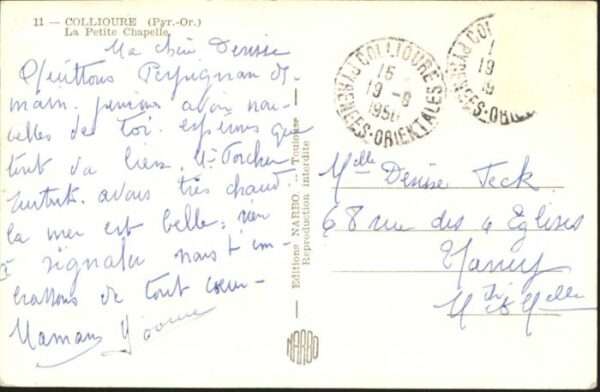 11 — COLLIOURE (Pyr.-Or.)
La Petite Chapelle
Ma chère Denise
Quittons Perpignan de-
main. pensions avoir nou-
velles de toi. espérons que
tout va bien.
avons très chaud.
la mer est belle, rien
à signaler nous t'em-
brassons de tout cœur_
Maman Yvonne
Editions NARBO. — Toulouse
Reproduction interdite
NARBO
COLLIOURE
PYRÉNÉES-ORIENTALES
15
19-9
1950
Melle Denise Teck
68 rue des 4 Eglises
Nancy
Mthe & Melle